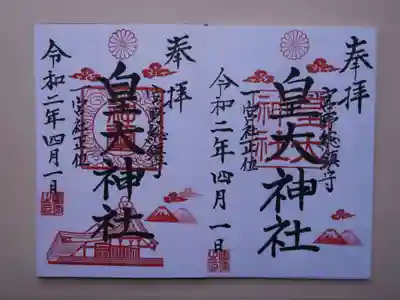 奉拝
宮野総鎮守
皇大神社
一宮社正位
令和二年四月一日
奉拝
宮野総鎮守
皇大神社
一宮社正位
令和二年四月一日